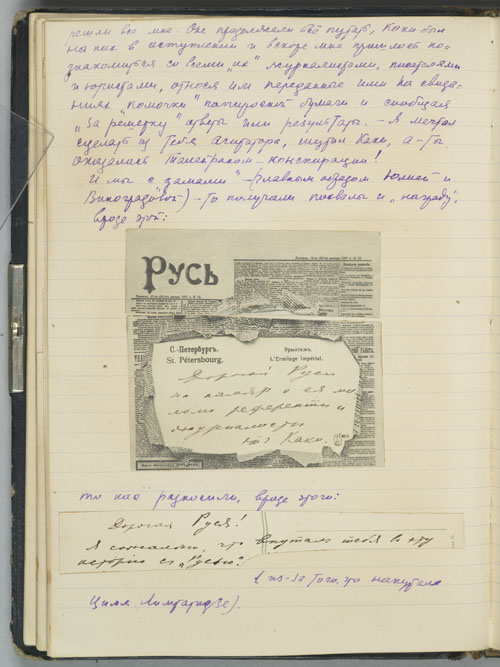 решли все мне. Оне продолжали всё путать, Каки был
на них в исступлении и вскоре мне пришлось по-
знакомиться со всеми „их“ журналистами, писателями
и юристами, относя им переданные ими на свида-
ниях „комочки“ папиросной бумаги и сообщая
„За решетку“ ответы или результаты. – Я мечтал
сделать из Тебя агитатора, шутил Каки, а – ты
оказалась конспирации!
И мы с дамами – (главным образом Юлией и
Виноградовой) – то получали похвалы и „награду“,
вроде этой:
РУСЬ
С.-Петербургъ. Эрмитажъ.
St. Pétersbourg. L'Ermitage Impérial.
Дорогой Руси
на память о ея ми-
лом референте и
журналисте
от Каки.
то нас разносили, вроде этого:
Дорогая Руся!
Я сожалею, что впутал тебя в эту
историю съ „Русью“.
(из-за того, что напутала
Циля